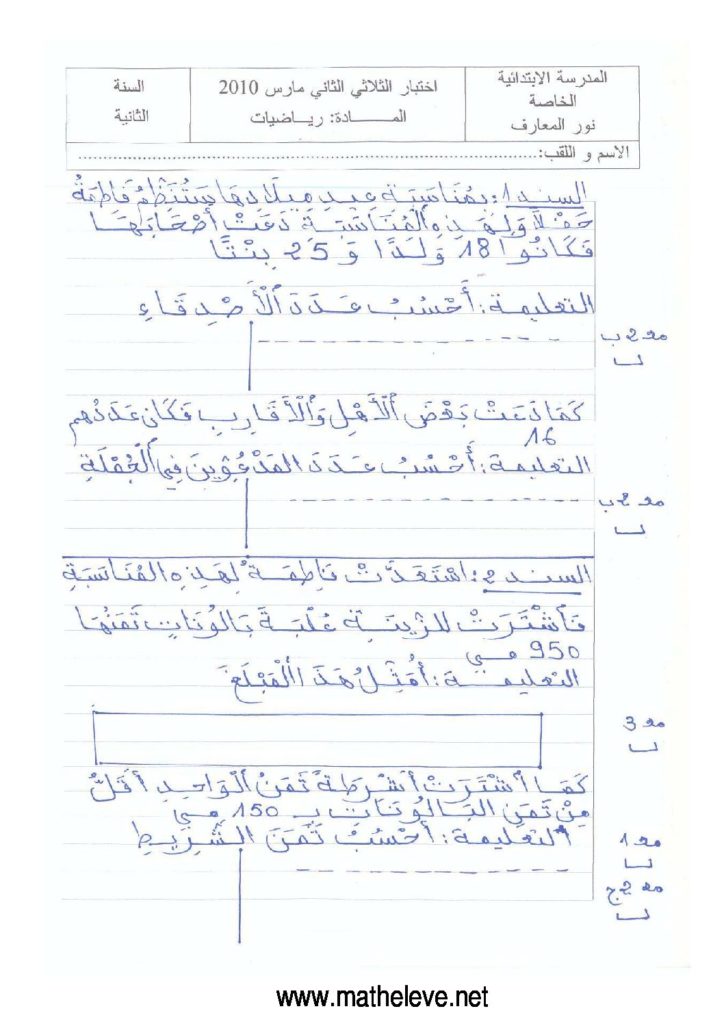 المدرسة الابتدائية
الخاصة
نور المعارف
اختبار الثلاثي الثاني مارس 2010
المــــــادة: رياضيات
السنة
الثانية
الاسم و اللقب:
السند 1: بِمُنَاسَبَةِ عِيدِ مِيلَادِهَا سَتُنَظِّمُ فَاطِمَةُ
حَفْلًا وَلِهَذِهِ الْمُنَاسَبَةِ دَعَتْ أَصْحَابَهَا
فَكَانُوا 18 وَلَدًا وَ 25 بِنْتًا
التعليمة: أَحْسُبُ عَدَدَ الْأَصْدِقَاءِ
مع 2 ب
كَمَا دَعَتْ بَعْضَ الْأَهْلِ وَالْأَقَارِبِ فَكَانَ عَدَدُهُم
16
التعليمة: أَحْسُبُ عَدَدَ المَدْعُوِّينَ فِي الْجُمْلَةِ
مع 2 ب
السند 2: اسْتَعَدَّتْ فَاطِمَة لِهَذِهِ المُنَاسَبَةِ
فَاشْتَرَتْ للزِّينَةِ عُلْبَةَ بَالُونَاتٍ ثَمَنُهَا
950 مي
التعليمــة: أُمَثِّلُ هَذَا الْمَبْلَغَ
مع 3
كَمَا اشْتَرَتْ أَشْرِطَةً ثَمَنُ الْوَاحِدِ أَقَلُّ
مِنْ ثَمَنِ البَالُونَاتِ بـ 150 مي
التعليمة: أَحْسُبُ ثَمَنَ الشَّرِيطِ
مع 1
مع 2 ج
www.matheleve.net